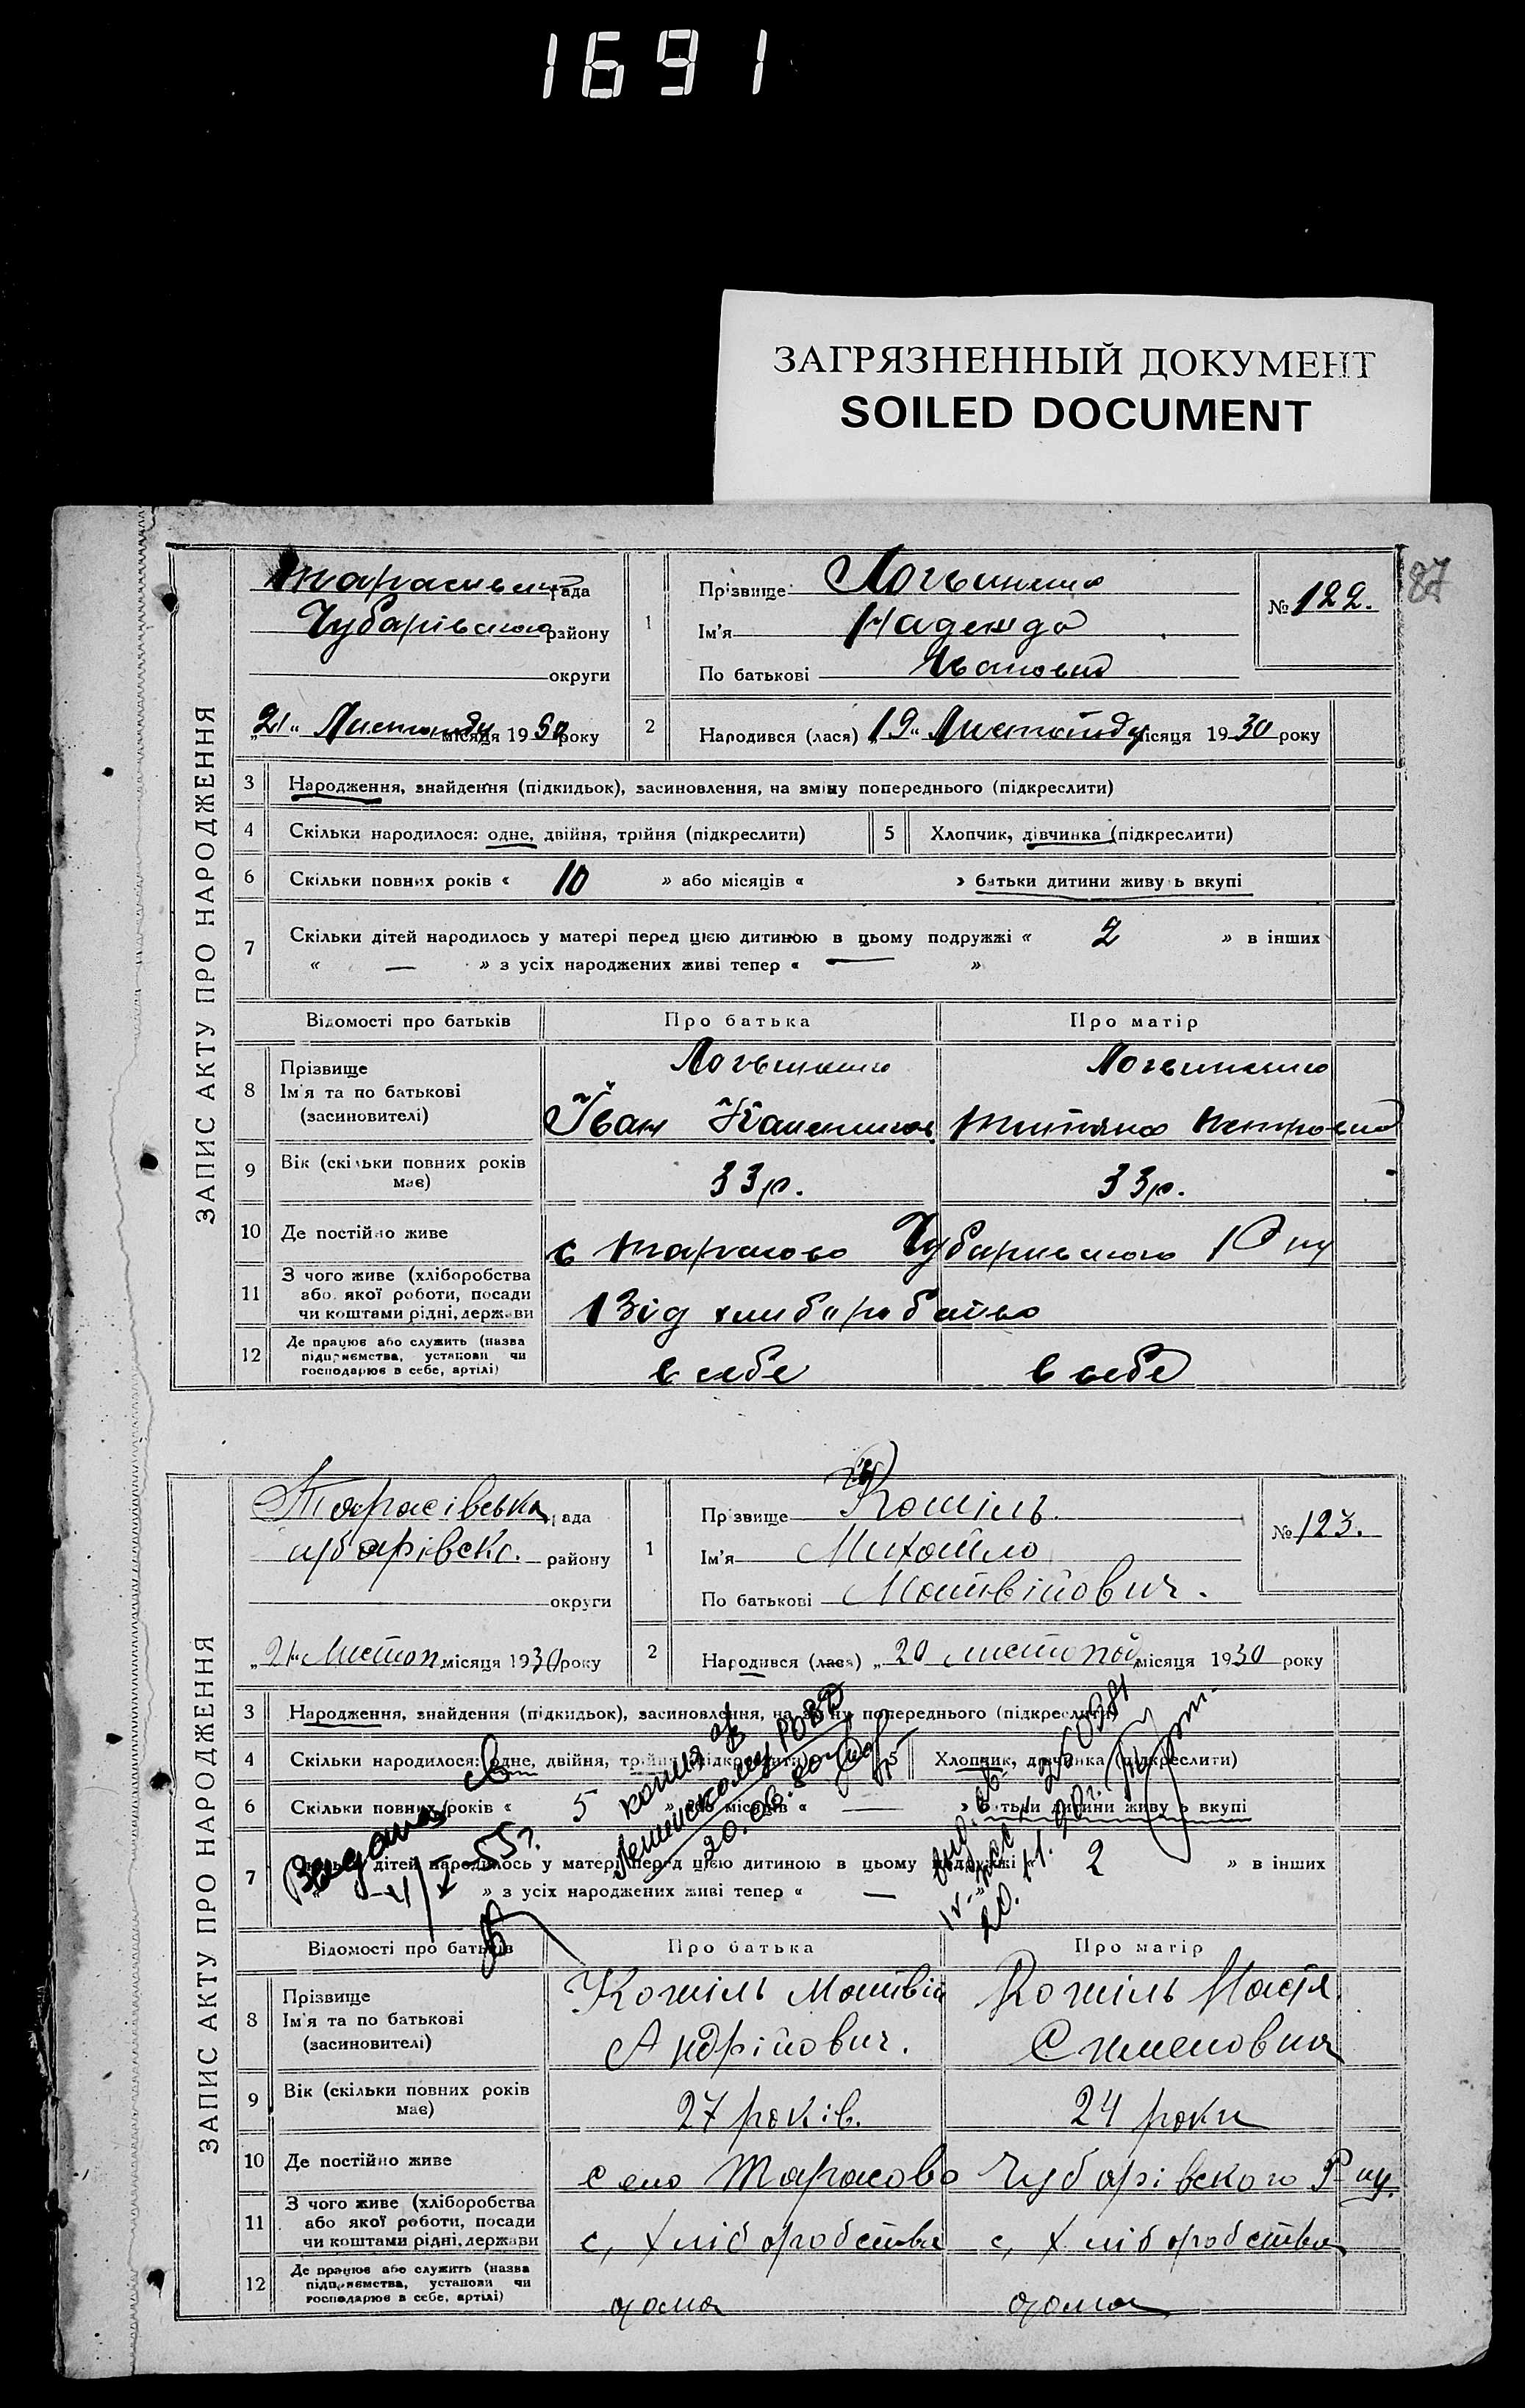 1691
ЗАГРЯЗНЕННЫЙ ДОКУМЕНТ
SOILED DOCUMENT
87
ЗАПИС АКТУ ПРО НАРОДЖЕННЯ
рада
Чубарівського району
округи
„21“ Листопаду місяця 1930 року
1 Прізвище Логвиненко
Ім'я Надежда
По батькові Ивановна
№ 122.
2 Народився (лася) „19“ Листопаду місяця 1930 року
3 Народження, знайдення (підкидьок), засиновлення, на зміну попереднього (підкреслити)
4 Скільки народилося: одне, двійня, трійня (підкреслити) 5 Хлопчик, дівчинка (підкреслити)
6 Скільки повних років « 10 » або місяців « » батьки дитини живуть вкупі
7 Скільки дітей народилось у матері перед цією дитиною в цьому подружжі « 2 » в інших
« — » з усіх народжених живі тепер « — »
Відомості про батьків Про батька Про матір
8 Прізвище
Ім'я та по батькові
(засиновителі)
Логвиненко Логвиненко
Іван Петровна
9 Вік (скільки повних років має) 33 р. 33 р.
10 Де постійно живе с Тарасово Чубаривского Р ну
11 З чого живе (хліборобства
або якої роботи, посади
чи коштами рідні, держави
Від
12 Де працює або служить (назва
підприємства, установи чи
господарює в себе, артілі)
в себе в себе
ЗАПИС АКТУ ПРО НАРОДЖЕННЯ
Тарасівська рада
Чубарівск. району
округи
„21“ Листоп місяця 1930 року
1 Прізвище Кошіль
Ім'я Михайло
По батькові Матвійович.
№ 123.
2 Народився (лася) „20 листопад місяця 1930 року
3 Народження, знайдення (підкидьок), засиновлення, на зміну попереднього (підкреслити)
4 Скільки народилося: одне, двійня, трійня (підкреслити) 5 Хлопчик, дівчинка (підкреслити)
6 Скільки повних років « 5 » або місяців « — » батьки дитини живуть вкупі
7 Скільки дітей народилось у матері перед цією дитиною в цьому подружжі « 2 » в інших
» з усіх народжених живі тепер « —
копия
РОВД
20.06.80
20.11.
Відомості про батьків Про батька Про матір
8 Прізвище
Ім'я та по батькові
(засиновителі)
Кошіль Матвій Кошіль Настя
Андрійович. Сименовна
9 Вік (скільки повних років має) 27 років. 24 роки
10 Де постійно живе село Тарасово Чубарівского Р-ну.
11 З чого живе (хліборобства
або якої роботи, посади
чи коштами рідні, держави
с, хліборобства с, хліборобства
12 Де працює або служить (назва
підприємства, установи чи
господарює в себе, артілі)
дома дома